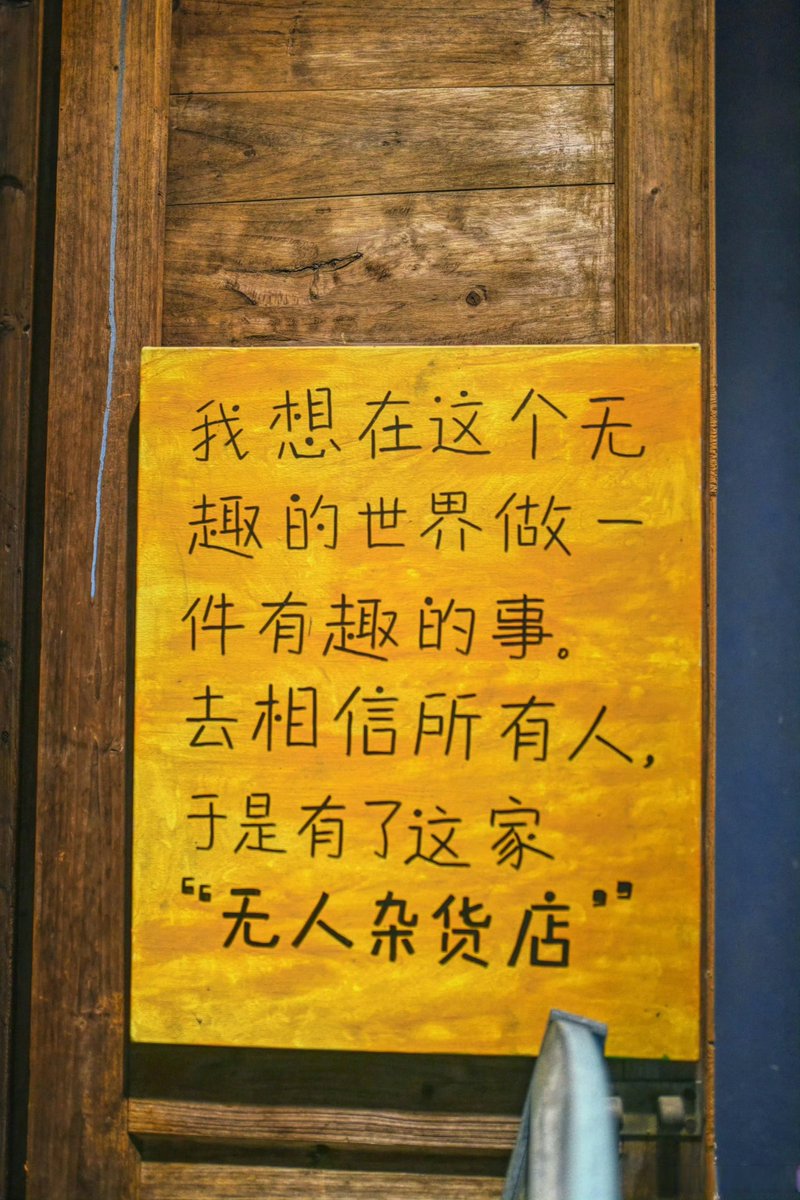 我想在这个无
趣的世界做一
件有趣的事。
去相信所有人,
于是有了这家
“无人杂货店”